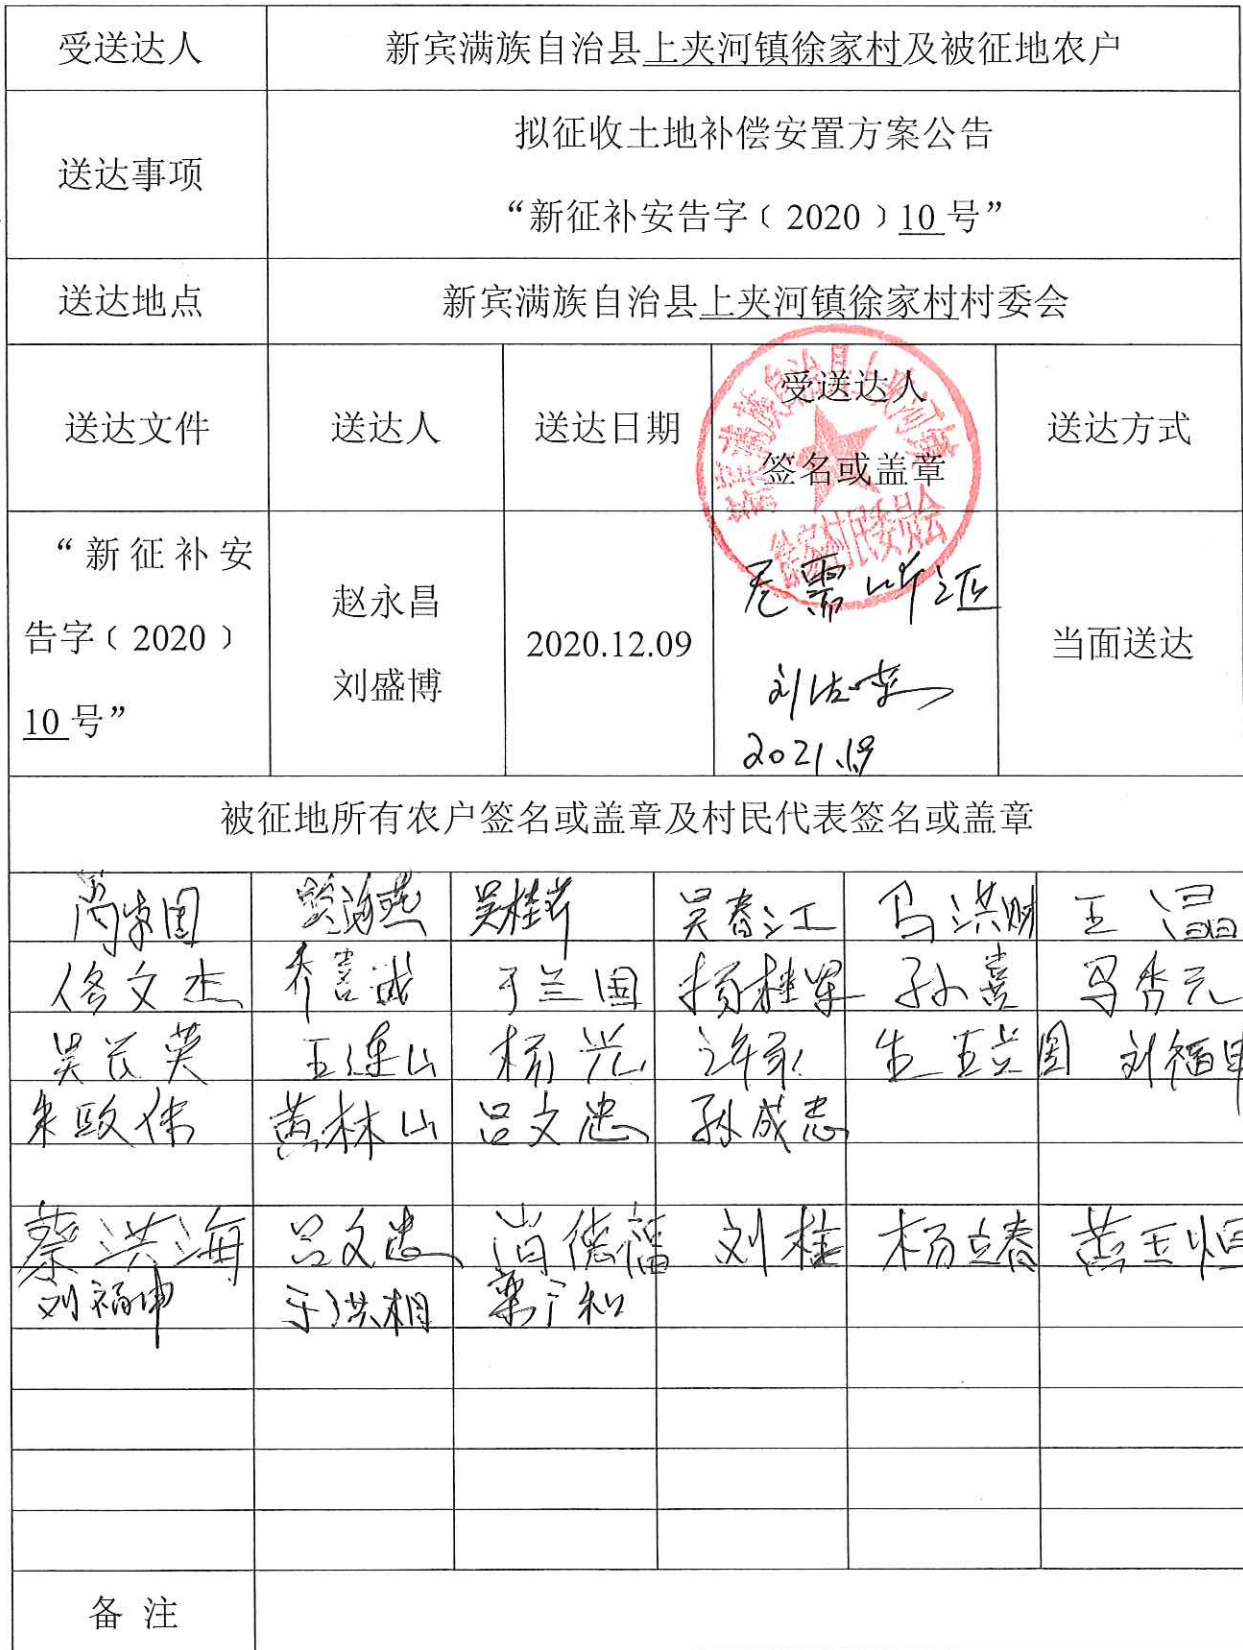 受送达人 新宾满族自治县上夹河镇徐家村及被征地农户
送达事项 拟征收土地补偿安置方案公告
“新征补安告字﹝2020﹞10 号”
送达地点 新宾满族自治县上夹河镇徐家村村委会
送达文件 送达人 送达日期 受送达人 签名或盖章 送达方式
“新征补安
告字﹝2020﹞
10 号”
赵永昌
刘盛博
2020.12.09
无需听证
2021.1.9
当面送达
被征地所有农户签名或盖章及村民代表签名或盖章
吴春江 马洪财 王温
修文杰 乔喜诚 于兰国 杨桂军 孙喜 马秀元
王连山 杨兴 刘福申
黄林山 吕文忠 孙成志
蔡洪海 吕文忠 肖德福 刘桂 杨立春 黄玉恒
刘福坤 于洪相 栾广和
备 注